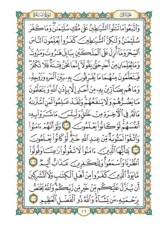 وَاتَّبَعُوا مَا تَتْلُوا الشَّيَاطِينُ عَلَىٰ مُلْكِ سُلَيْمَانَ وَمَا كَفَرَ
سُلَيْمَانُ وَلَٰكِنَّ الشَّيَاطِينَ كَفَرُوا يُعَلِّمُونَ النَّاسَ
السِّحْرَ وَمَا أُنزِلَ عَلَى الْمَلَكَيْنِ بِبَابِلَ هَارُوتَ وَمَارُوتَ
وَمَا يُعَلِّمَانِ مِنْ أَحَدٍ حَتَّىٰ يَقُولَا إِنَّمَا نَحْنُ فِتْنَةٌ فَلَا تَكْفُرْ
فَيَتَعَلَّمُونَ مِنْهُمَا مَا يُفَرِّقُونَ بِهِ بَيْنَ الْمَرْءِ وَزَوْجِهِ
وَمَا هُم بِضَارِّينَ بِهِ مِنْ أَحَدٍ إِلَّا بِإِذْنِ اللَّهِ وَيَتَعَلَّمُونَ
مَا يَضُرُّهُمْ وَلَا يَنفَعُهُمْ وَلَقَدْ عَلِمُوا لَمَنِ اشْتَرَاهُ
مَا لَهُ فِي الْآخِرَةِ مِنْ خَلَاقٍ وَلَبِئْسَ مَا شَرَوْا بِهِ
أَنفُسَهُمْ لَوْ كَانُوا يَعْلَمُونَ ١٠٢ وَلَوْ أَنَّهُمْ آمَنُوا
وَاتَّقَوْا لَمَثُوبَةٌ مِّنْ عِندِ اللَّهِ خَيْرٌ لَّوْ كَانُوا
يَعْلَمُونَ ١٠٣ يَا أَيُّهَا الَّذِينَ آمَنُوا لَا تَقُولُوا رَاعِنَا وَقُولُوا
انظُرْنَا وَاسْمَعُوا وَلِلْكَافِرِينَ عَذَابٌ أَلِيمٌ ١٠٤
مَّا يَوَدُّ الَّذِينَ كَفَرُوا مِنْ أَهْلِ الْكِتَابِ وَلَا الْمُشْرِكِينَ
أَن يُنَزَّلَ عَلَيْكُم مِّنْ خَيْرٍ مِّن رَّبِّكُمْ وَاللَّهُ يَخْتَصُّ
بِرَحْمَتِهِ مَن يَشَاءُ وَاللَّهُ ذُو الْفَضْلِ الْعَظِيمِ ١٠٥
١٦